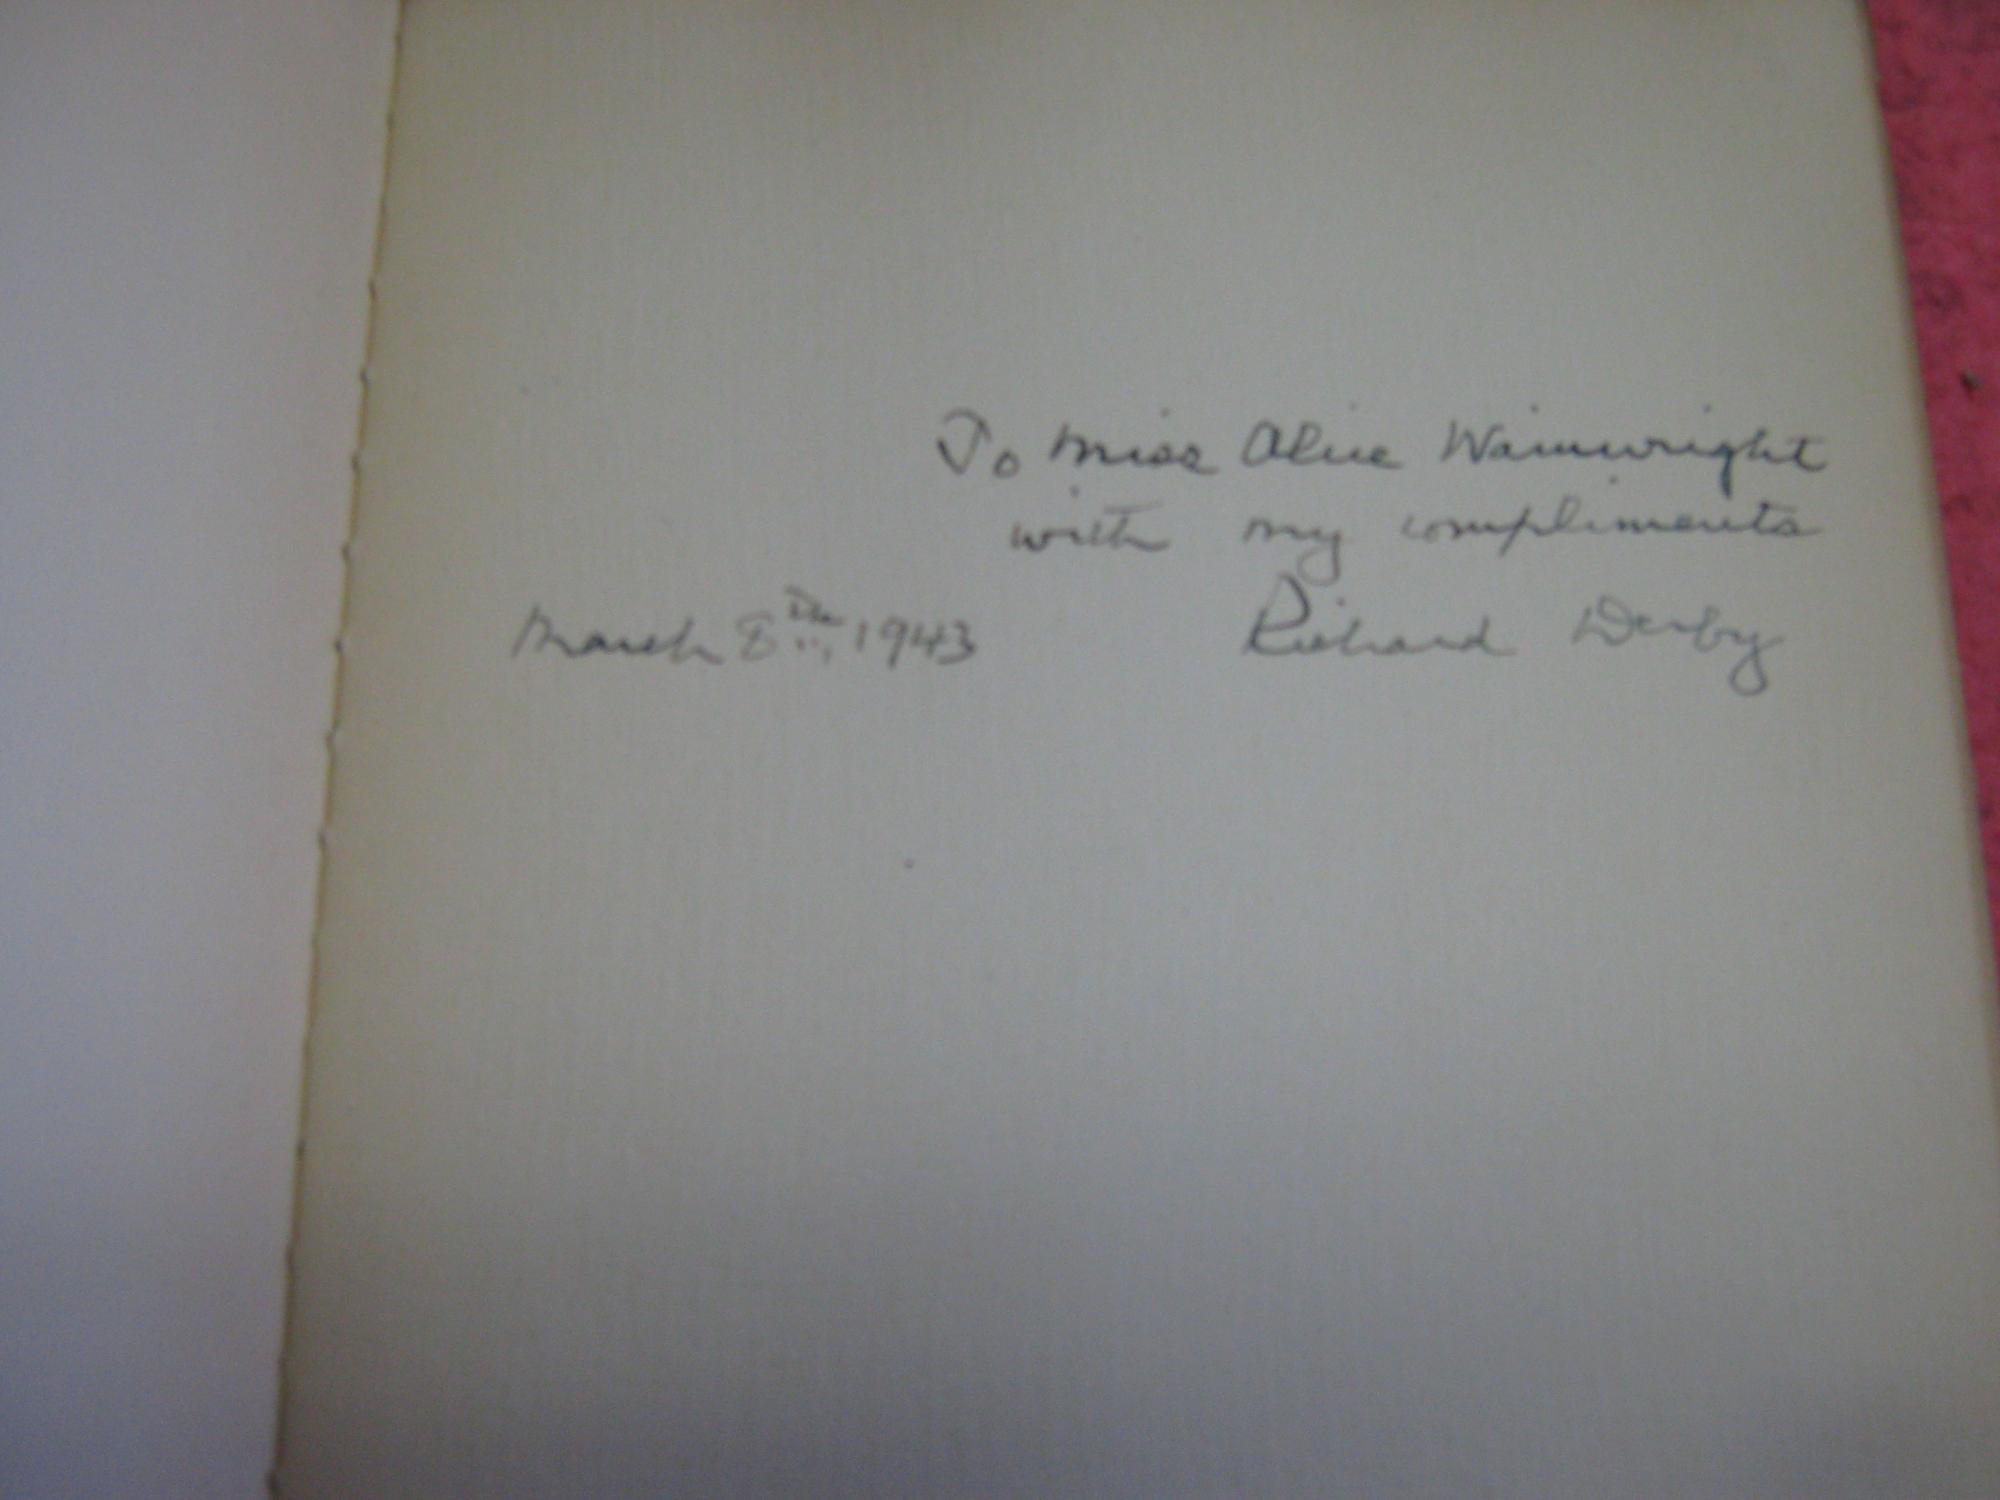 To Miss Alice Wainwright
with my compliments
March 8th, 1943 Richard Derby